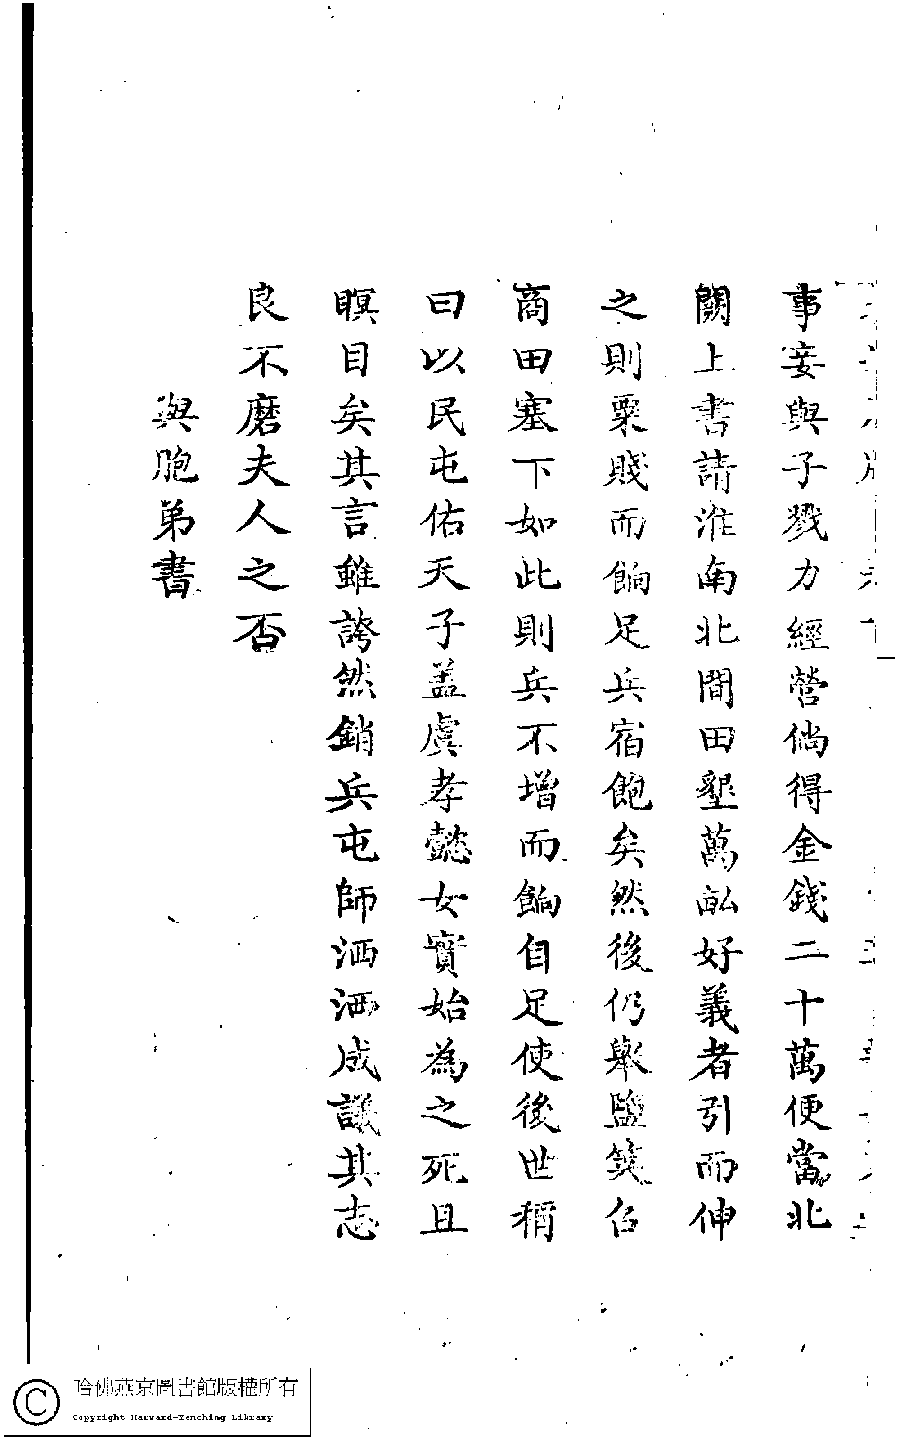 事妾與子戮力經營倘得金錢二十萬便當北
闕上書請淮南北間田墾萬畝好義者引而伸
之則粟賤而餉足兵宿飽矣然後仍舉鹽筴召
商田塞下如此則兵不增而餉自足使後世稱
曰以民屯佑天子蓋虞孝懿女實始為之死且
瞑目矣其言雖誇然銷兵屯師洒洒成議其志
良不磨夫人之否
與胞弟書
哈佛燕京圖書館版權所有
Copyright Harvard-Yenching Library